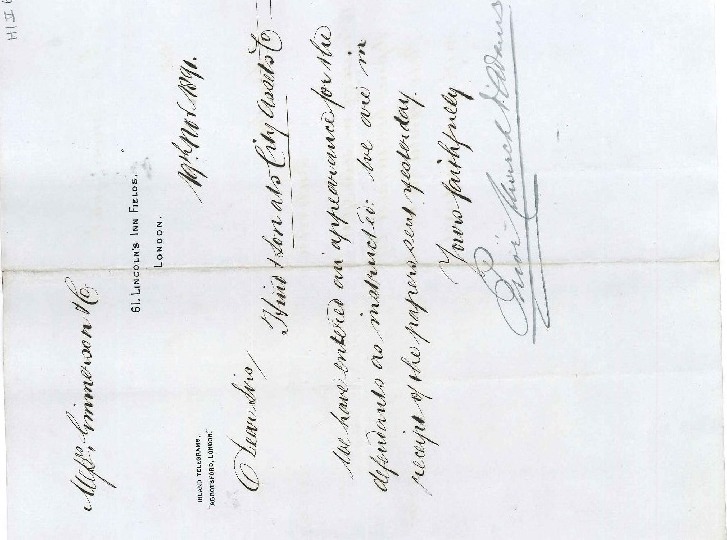 Messrs Emmerson & Co
61, LINCOLN'S INN FIELDS,
LONDON.
INLAND TELEGRAMS,
"ABBOTSFORD, LONDON."
19th Nov 1891.
Dear Sirs
Hind & Son ats City Assets Co
We have entered an appearance for the
defendants as instructed: We are in
receipt of the papers sent yesterday.
Yours faithfully
Church & Adams